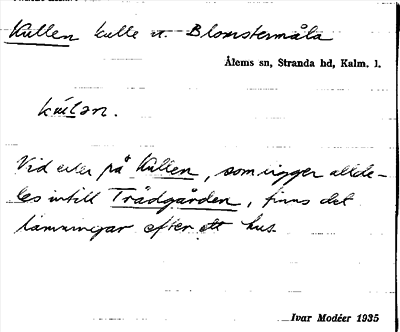 Kullen kulle v. Blomstermåla
Ålems sn, Stranda hd, Kalm. l.
kúlan.
Vid eller på Kullen, som ligger allde-
les intill Trädgården, finns det
lämningar efter ett hus.
Ivar Modéer 1935